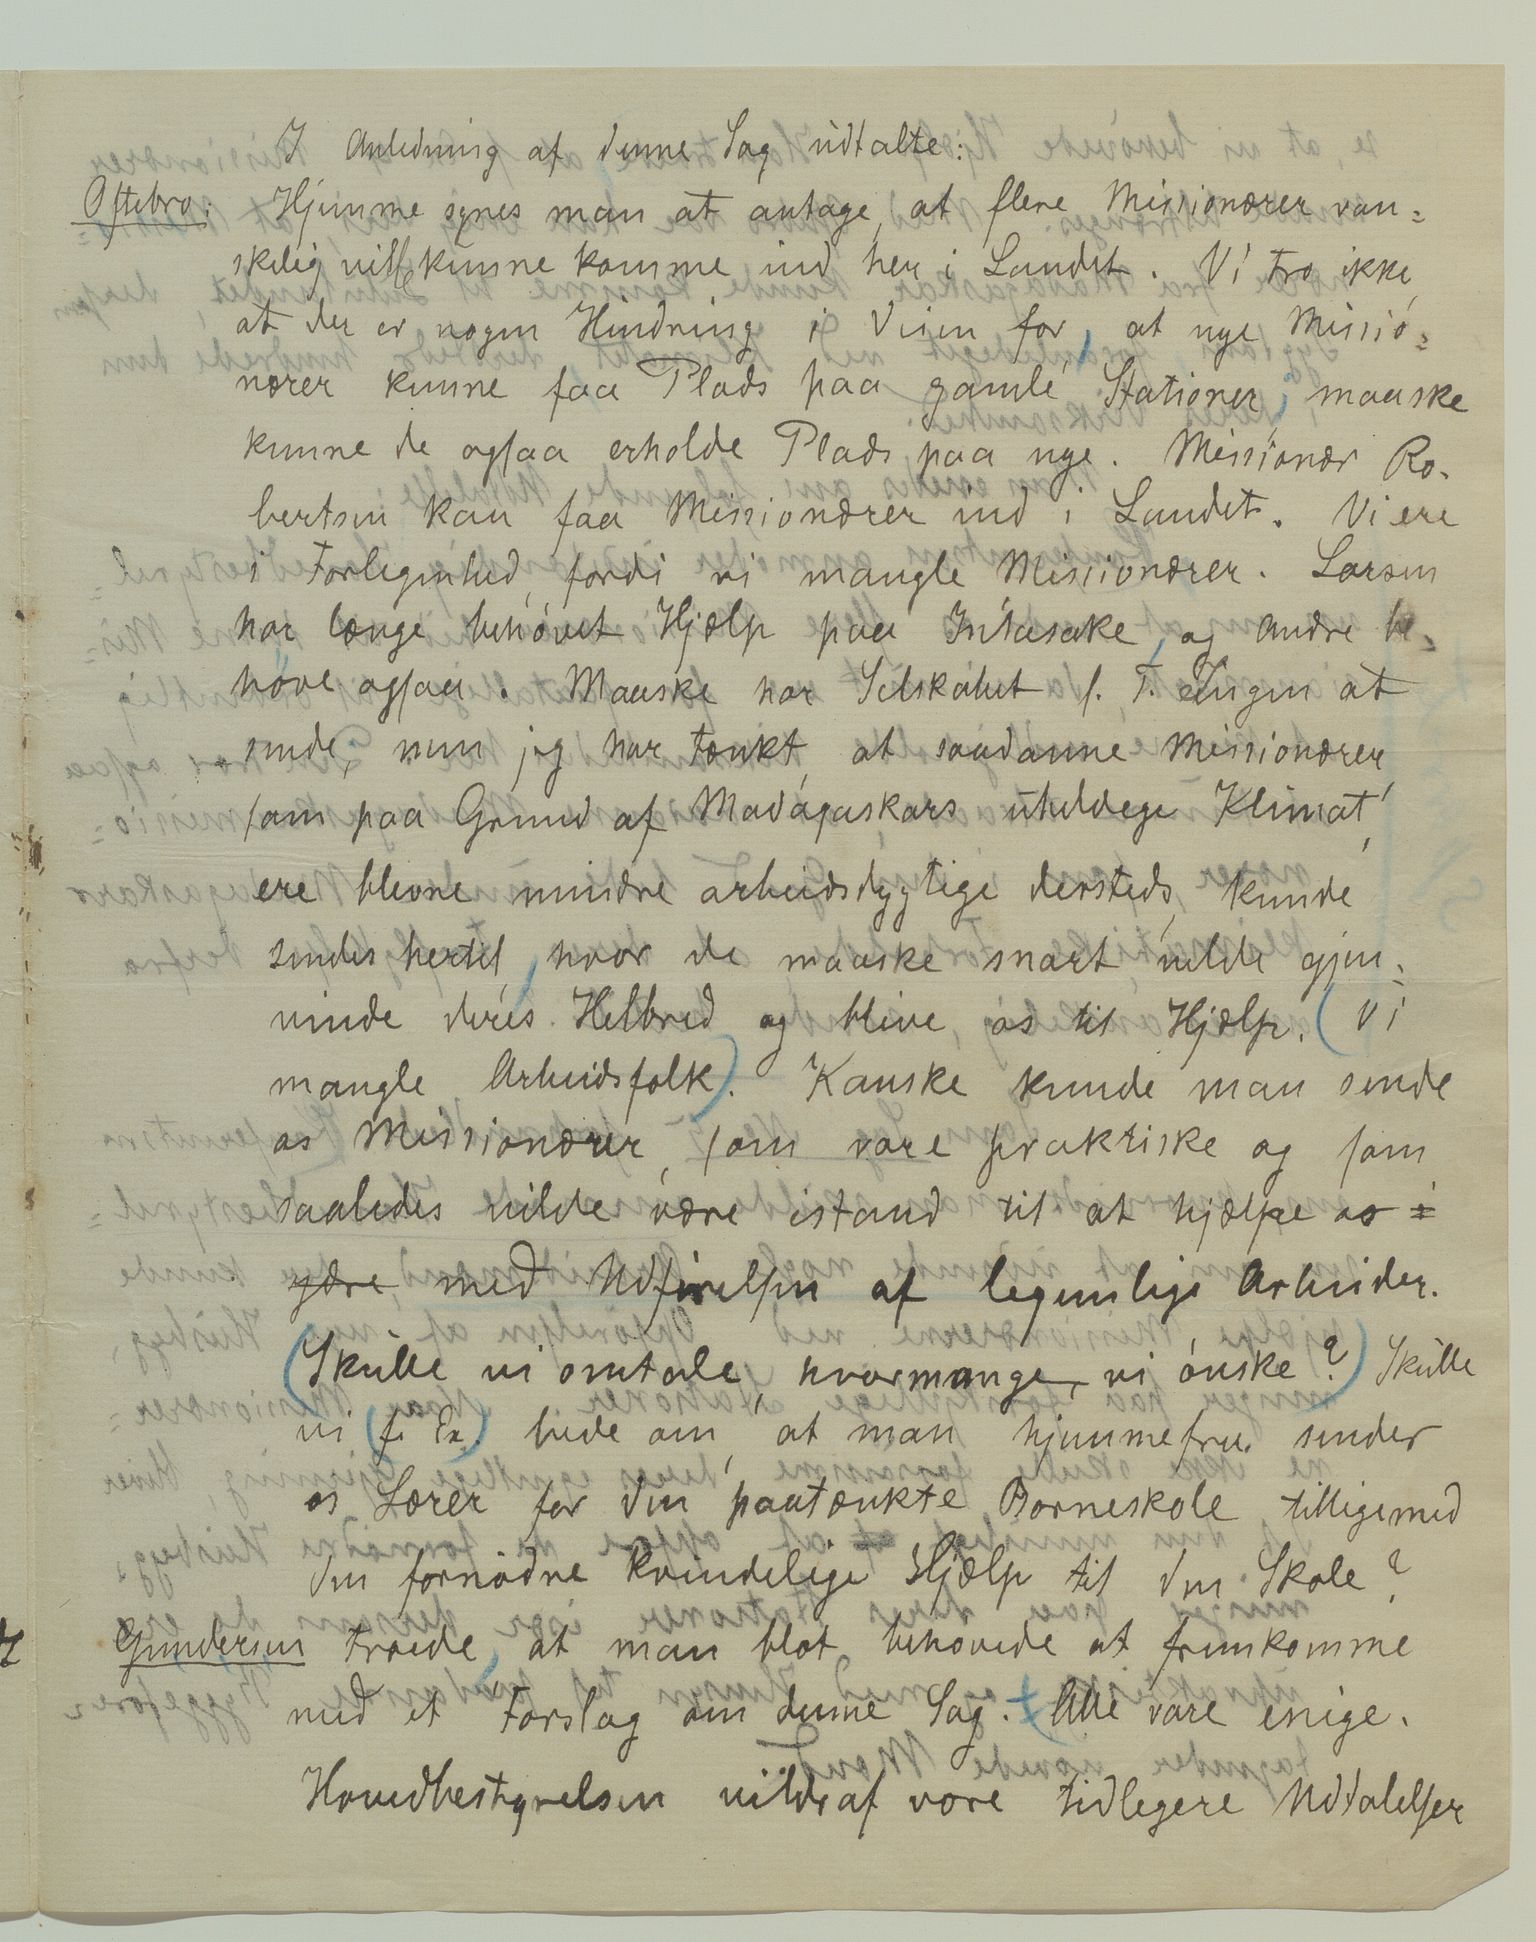 I Anledning af denne Sag udtalte:
Oftebro: Hjemme synes man at antage, at flere Missionærer van-
skelig vil kunne komme ind her i Landet. Vi tro ikke,
at der er nogen Hindring i Veien for, at nye Missio-
nærer kunne faa Plads paa gamle Stationer, maaske
kunne de ogsaa erholde Plads paa nye. Missionær Ro-
bertsen kan faa Missionærer ind i Landet. Vi ere
i Forlegenhed, fordi vi mangle Missionærer. Larsen
har længe behøvet Hjælp paa Intasake, og Andre be-
høve ogsaa. Maaske har Selskabet f. T. Ingen at
sende, men jeg har tænkt, at saadanne Missionærer,
som paa Grund af Madagaskars uheldige Klimat,
ere blevne mindre arbeidsdygtige dersteds, kunde
sendes hertil, hvor de maaske snart vilde gjen-
vinde deres Helbred og blive os til Hjælp. (Vi
mangle Arbeidsfolk). Kanske kunde man sende
os Missionærer, som vare praktiske og som
saaledes vilde være istand til at hjælpe os
med Udførelsen af legemlige Arbeider.
(Skulle vi omtale, hvormange vi ønske?) Skulle
vi (f. Ex.) bede om, at man hjemmefra sender
os Lærer for den paatænkte Børneskole tilligemed
den fornødne kvindelige Hjælp til den Skole?
Gundersen troede, at man blot behøvede at fremkomme
med et Forslag om denne Sag. Alle vare enige.
Hovedbestyrelsen vilde af vore tidligere Udtalelser